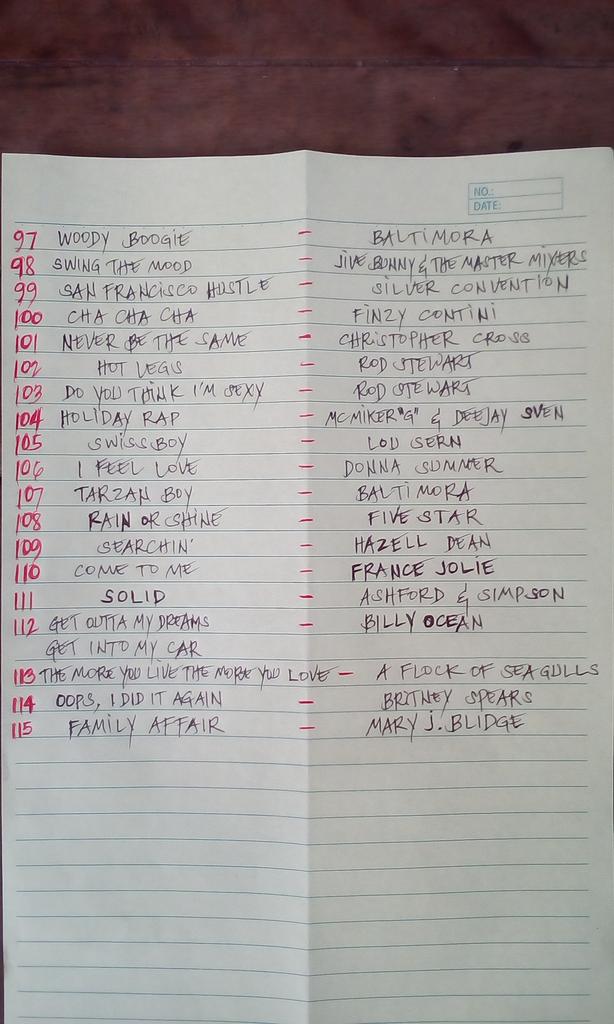 NO.:
DATE:
97 WOODY BOOGIE - BALTIMORA
98 SWING THE MOOD - JIVE BUNNY & THE MASTER MIXERS
99 SAN FRANCISCO HUSTLE - SILVER CONVENTION
100 CHA CHA CHA - FINZY CONTINI
101 NEVER BE THE SAME - CHRISTOPHER CROSS
102 HOT LEGS - ROD STEWART
103 DO YOU THINK I'M SEXY - ROD STEWART
104 HOLIDAY RAP - MC MIKER "G" & DEEJAY SVEN
105 SWISS BOY - LOU SERN
106 I FEEL LOVE - DONNA SUMMER
107 TARZAN BOY - BALTIMORA
108 RAIN OR SHINE - FIVE STAR
109 SEARCHIN' - HAZELL DEAN
110 COME TO ME - FRANCE JOLIE
111 SOLID - ASHFORD & SIMPSON
112 GET OUTTA MY DREAMS - BILLY OCEAN
GET INTO MY CAR
113 THE MORE YOU LIVE THE MORE YOU LOVE - A FLOCK OF SEAGULLS
114 OOPS, I DID IT AGAIN - BRITNEY SPEARS
115 FAMILY AFFAIR - MARY J. BLIDGE